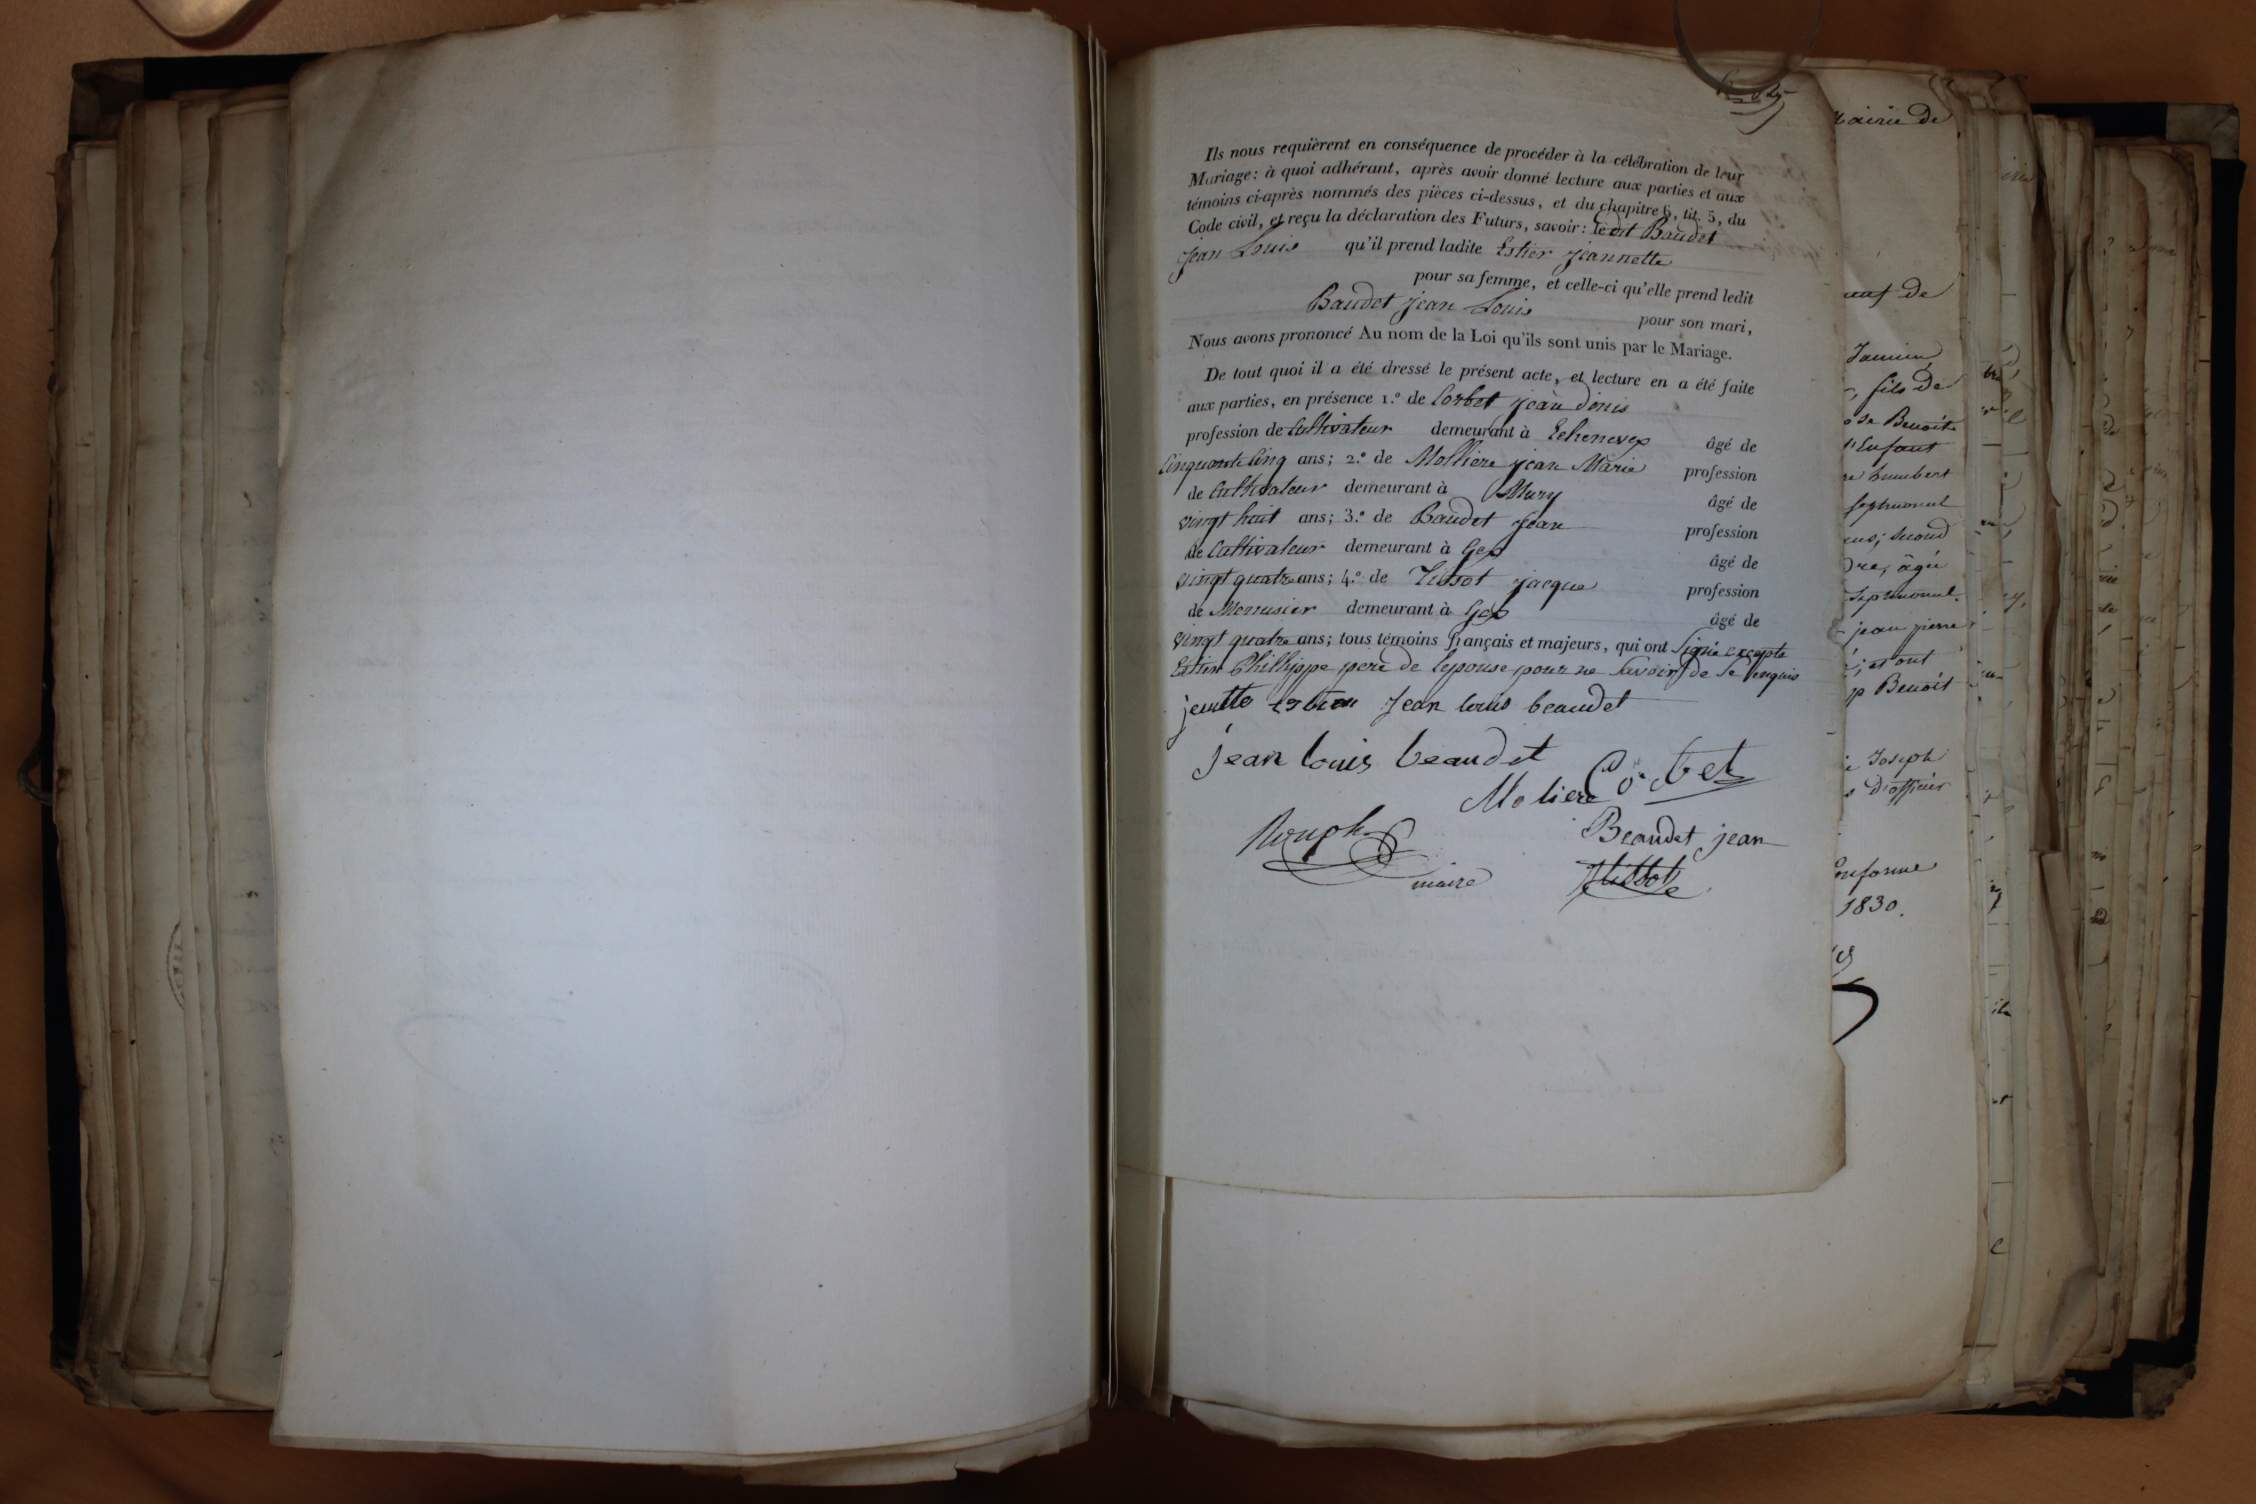 Ils nous requièrent en conséquence de procéder à la célébration de leur
Mariage: à quoi adhérant, après avoir donné lecture aux parties et aux
témoins ci-après nommés des pièces ci-dessus, et du chapitre 6, tit. 5, du
Code civil, et reçu la déclaration des Futurs, savoir: ledit Baudet
jean Louis qu'il prend ladite Estier jeannette
pour sa femme, et celle-ci qu'elle prend ledit
Baudet jean Louis pour son mari,
Nous avons prononcé Au nom de la Loi qu'ils sont unis par le Mariage.
De tout quoi il a été dressé le présent acte, et lecture en a été faite
aux parties, en présence 1.º de Corbet jean Donis
profession de Cultivateur demeurant à Echenevex âgé de
Cinquante Cinq ans; 2.º de Molliere jean Marie profession
de Cultivateur demeurant à Mury âgé de
vingt huit ans; 3.º de Baudet jean profession
de Cultivateur demeurant à Gex âgé de
vingt quatre ans; 4.º de Tissot jacque profession
de Menuisier demeurant à Gex âgé de
vingt quatre ans; tous témoins français et majeurs, qui ont signé excepté
Estier Philippe pere de lepouse pour ne Savoir de Ce enquis
Jean louis beaudet
jean louis beaudet
Corbet
Moliere
Beaudet jean
Rouph
maire
Tissot
Mairie de
fils de
Benoit
l'Enfant
humbert
Septmoncel
âgé
Septmoncel.
jean pierre
et ont
Benoit
Joseph
D'officier
1830.